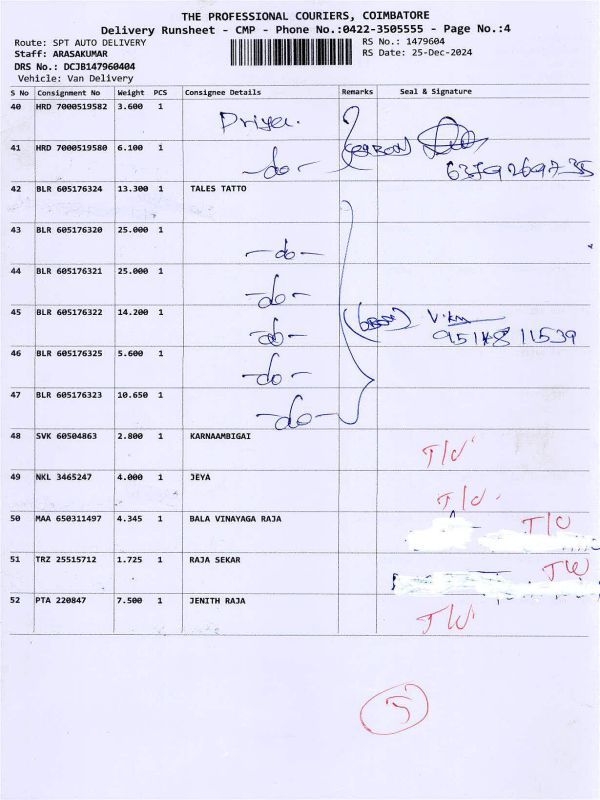 THE PROFESSIONAL COURIERS, COIMBATORE
Delivery Runsheet - CMP - Phone No.:0422-3505555 - Page No.:4
Route: SPT AUTO DELIVERY
RS No.: 1479604
Staff: ARASAKUMAR
RS Date: 25-Dec-2024
DRS No.: DCJB147960404
Vehicle: Van Delivery
S No Consignment No Weight PCS Consignee Details Remarks Seal & Signature
40 HRD 7000519582 3.600 1 Priya.
41 HRD 7000519580 6.100 1 -do-
42 BLR 605176324 13.300 1 TALES TATTO
43 BLR 605176320 25.000 1 -do-
44 BLR 605176321 25.000 1 -do-
45 BLR 605176322 14.200 1 -do-
46 BLR 605176325 5.600 1 -do-
47 BLR 605176323 10.650 1 -do-
48 SVK 60504863 2.800 1 KARNAAMBIGAI
49 NKL 3465247 4.000 1 JEYA
50 MAA 650311497 4.345 1 BALA VINAYAGA RAJA
51 TRZ 25515712 1.725 1 RAJA SEKAR
52 PTA 220847 7.500 1 JENITH RAJA
5